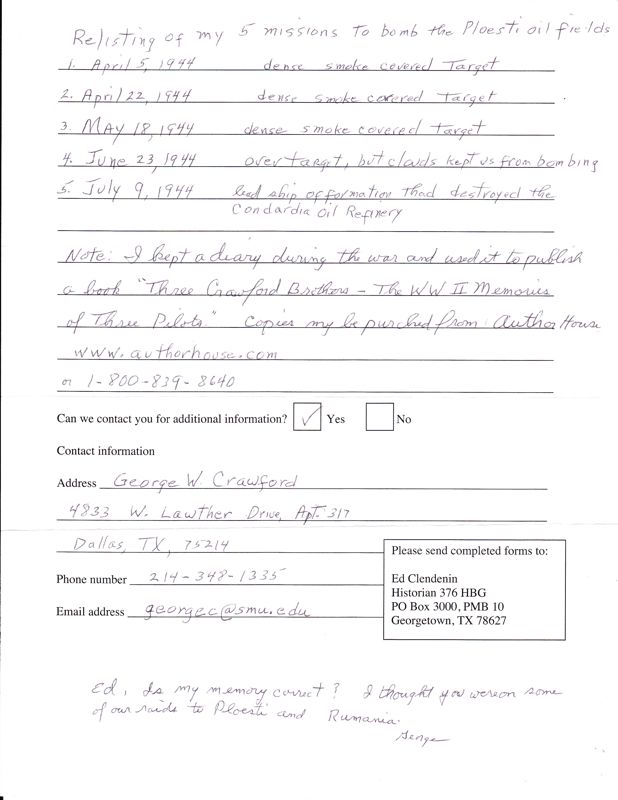 Relisting of my 5 missions to bomb the Ploesti oil fields
1. April 5, 1944 dense smoke covered Target
2. April 22, 1944 dense smoke covered Target
3. May 18, 1944 dense smoke covered Target
4. June 23, 1944 over target, but clouds kept us from bombing
5. July 9, 1944 lead ship of formation thad destroyed the
Condardia Oil Refinery
Note: I kept a diary during the war and used it to publish
a book "Three Crawford Brothers - The WW II Memories
of Three Pilots." Copies my be purched from Author House
www.authorhouse.com
or 1-800-839-8640
Can we contact you for additional information? ✓ Yes No
Contact information
Address George W. Crawford
4833 W. Lawther Drive, Apt. 317
Dallas, TX, 75214
Phone number 214-348-1335
Email address georgec@smu.edu
Please send completed forms to:
Ed Clendenin
Historian 376 HBG
PO Box 3000, PMB 10
Georgetown, TX 78627
Ed, Is my memory correct? I thought you were on some
of our raids to Ploesti and Rumania.
George